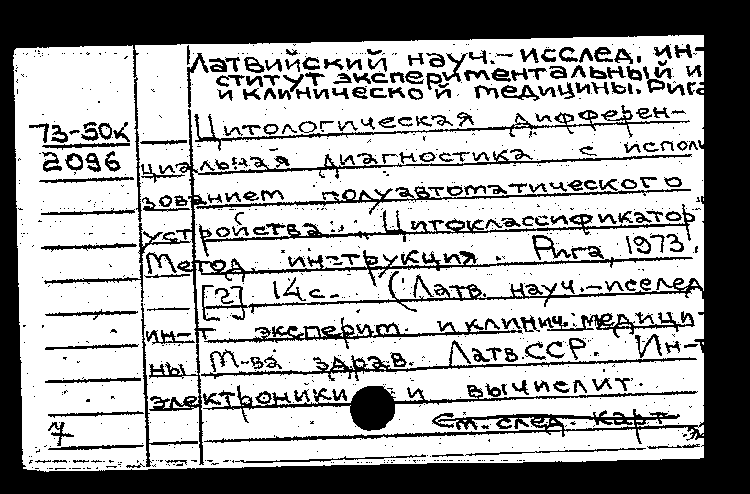 Латвийский науч.-исслед. ин-
ститут экспериментальный и
и клинической медицины. Рига
73-50к
2096
Цитологическая дифферен-
циальная диагностика с исполь
зованием полуавтоматического
устройства „Цитоклассификатор"
Метод. инструкция. Рига, 1973.
[2], 14 с. (Латв. науч.-исслед
ин-т эксперим. и клинич. медици-
ны М-ва здрав. Латв.ССР. Ин-т
электроники и вычислит.
См. след. карт
7